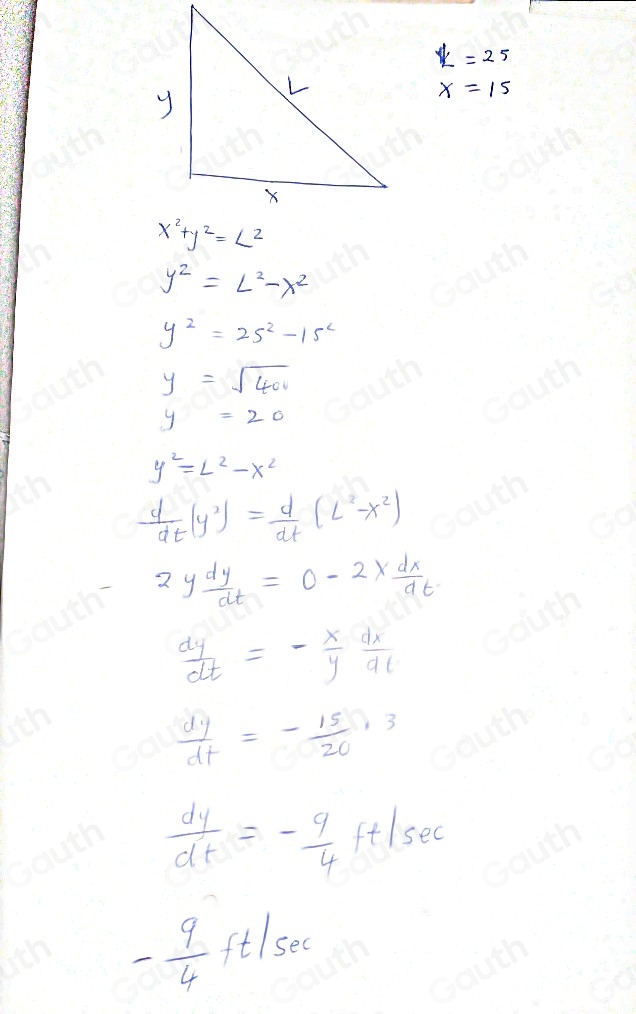 y
L
x
L = 25
x = 15
x²+y² = L²
y² = L²-x²
y² = 25² - 15²
y = √400
y = 20
y² = L² - x²
d/dt (y²) = d/dt (L²-x²)
- 2y dy/dt = 0 - 2x dx/dt
dy/dt = - x/y dx/dt
dy/dt = - 15/20 . 3
dy/dt = - 9/4 ft/sec
- 9/4 ft/sec
Gauth